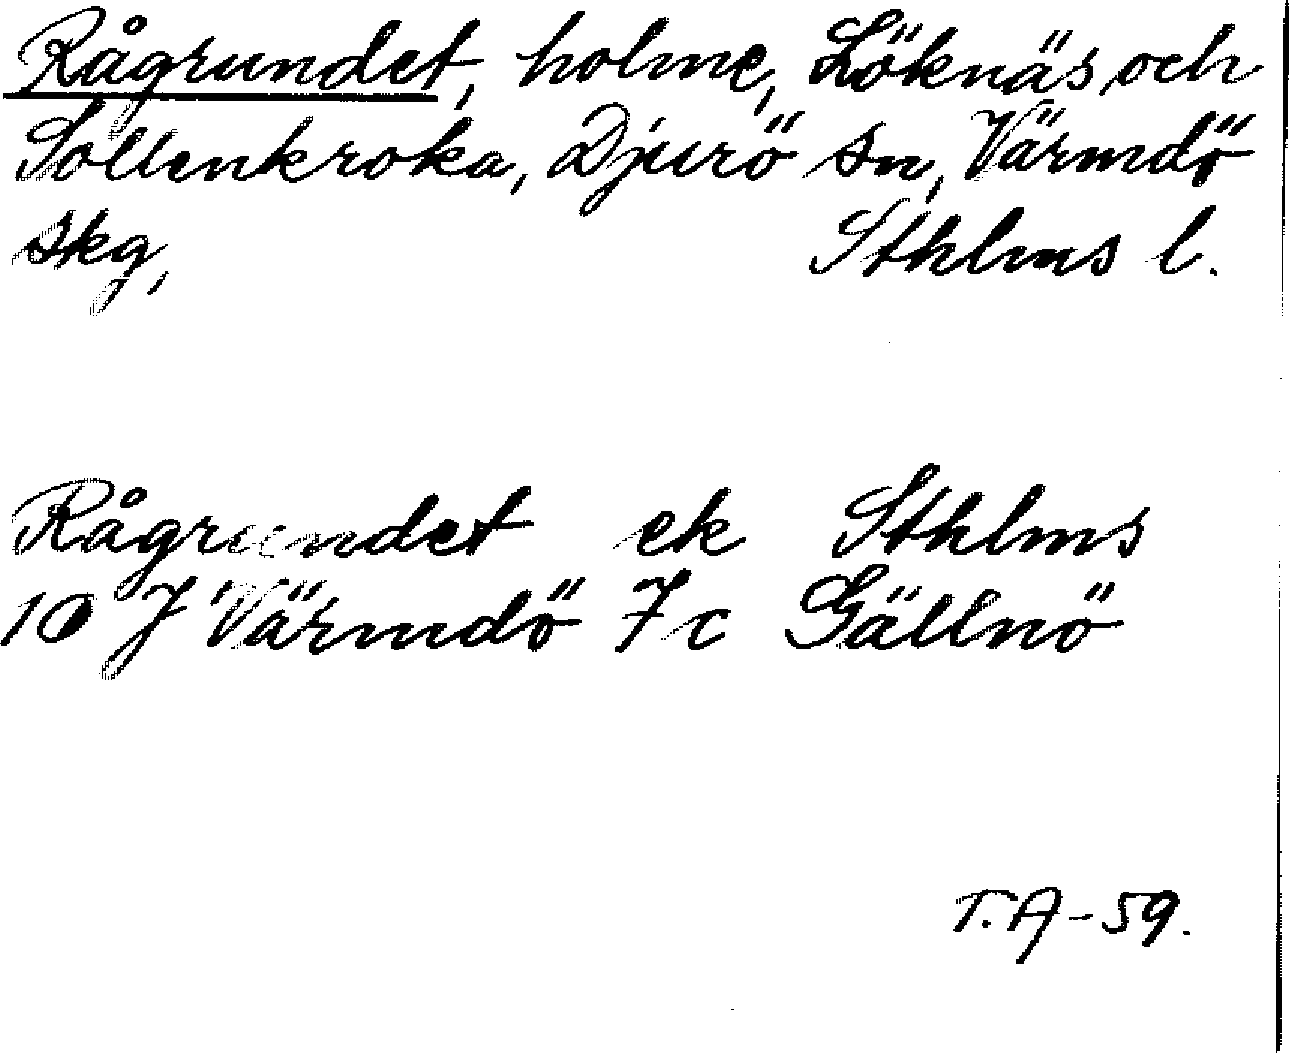 Rågrundet, holme, Löknäs och
Sollenkroka, Djurö sn, Värmdö
skg, Sthlms l.
Rågrundet ek Sthlms
10 J Värmdö 7c Gällnö
T.A-59.